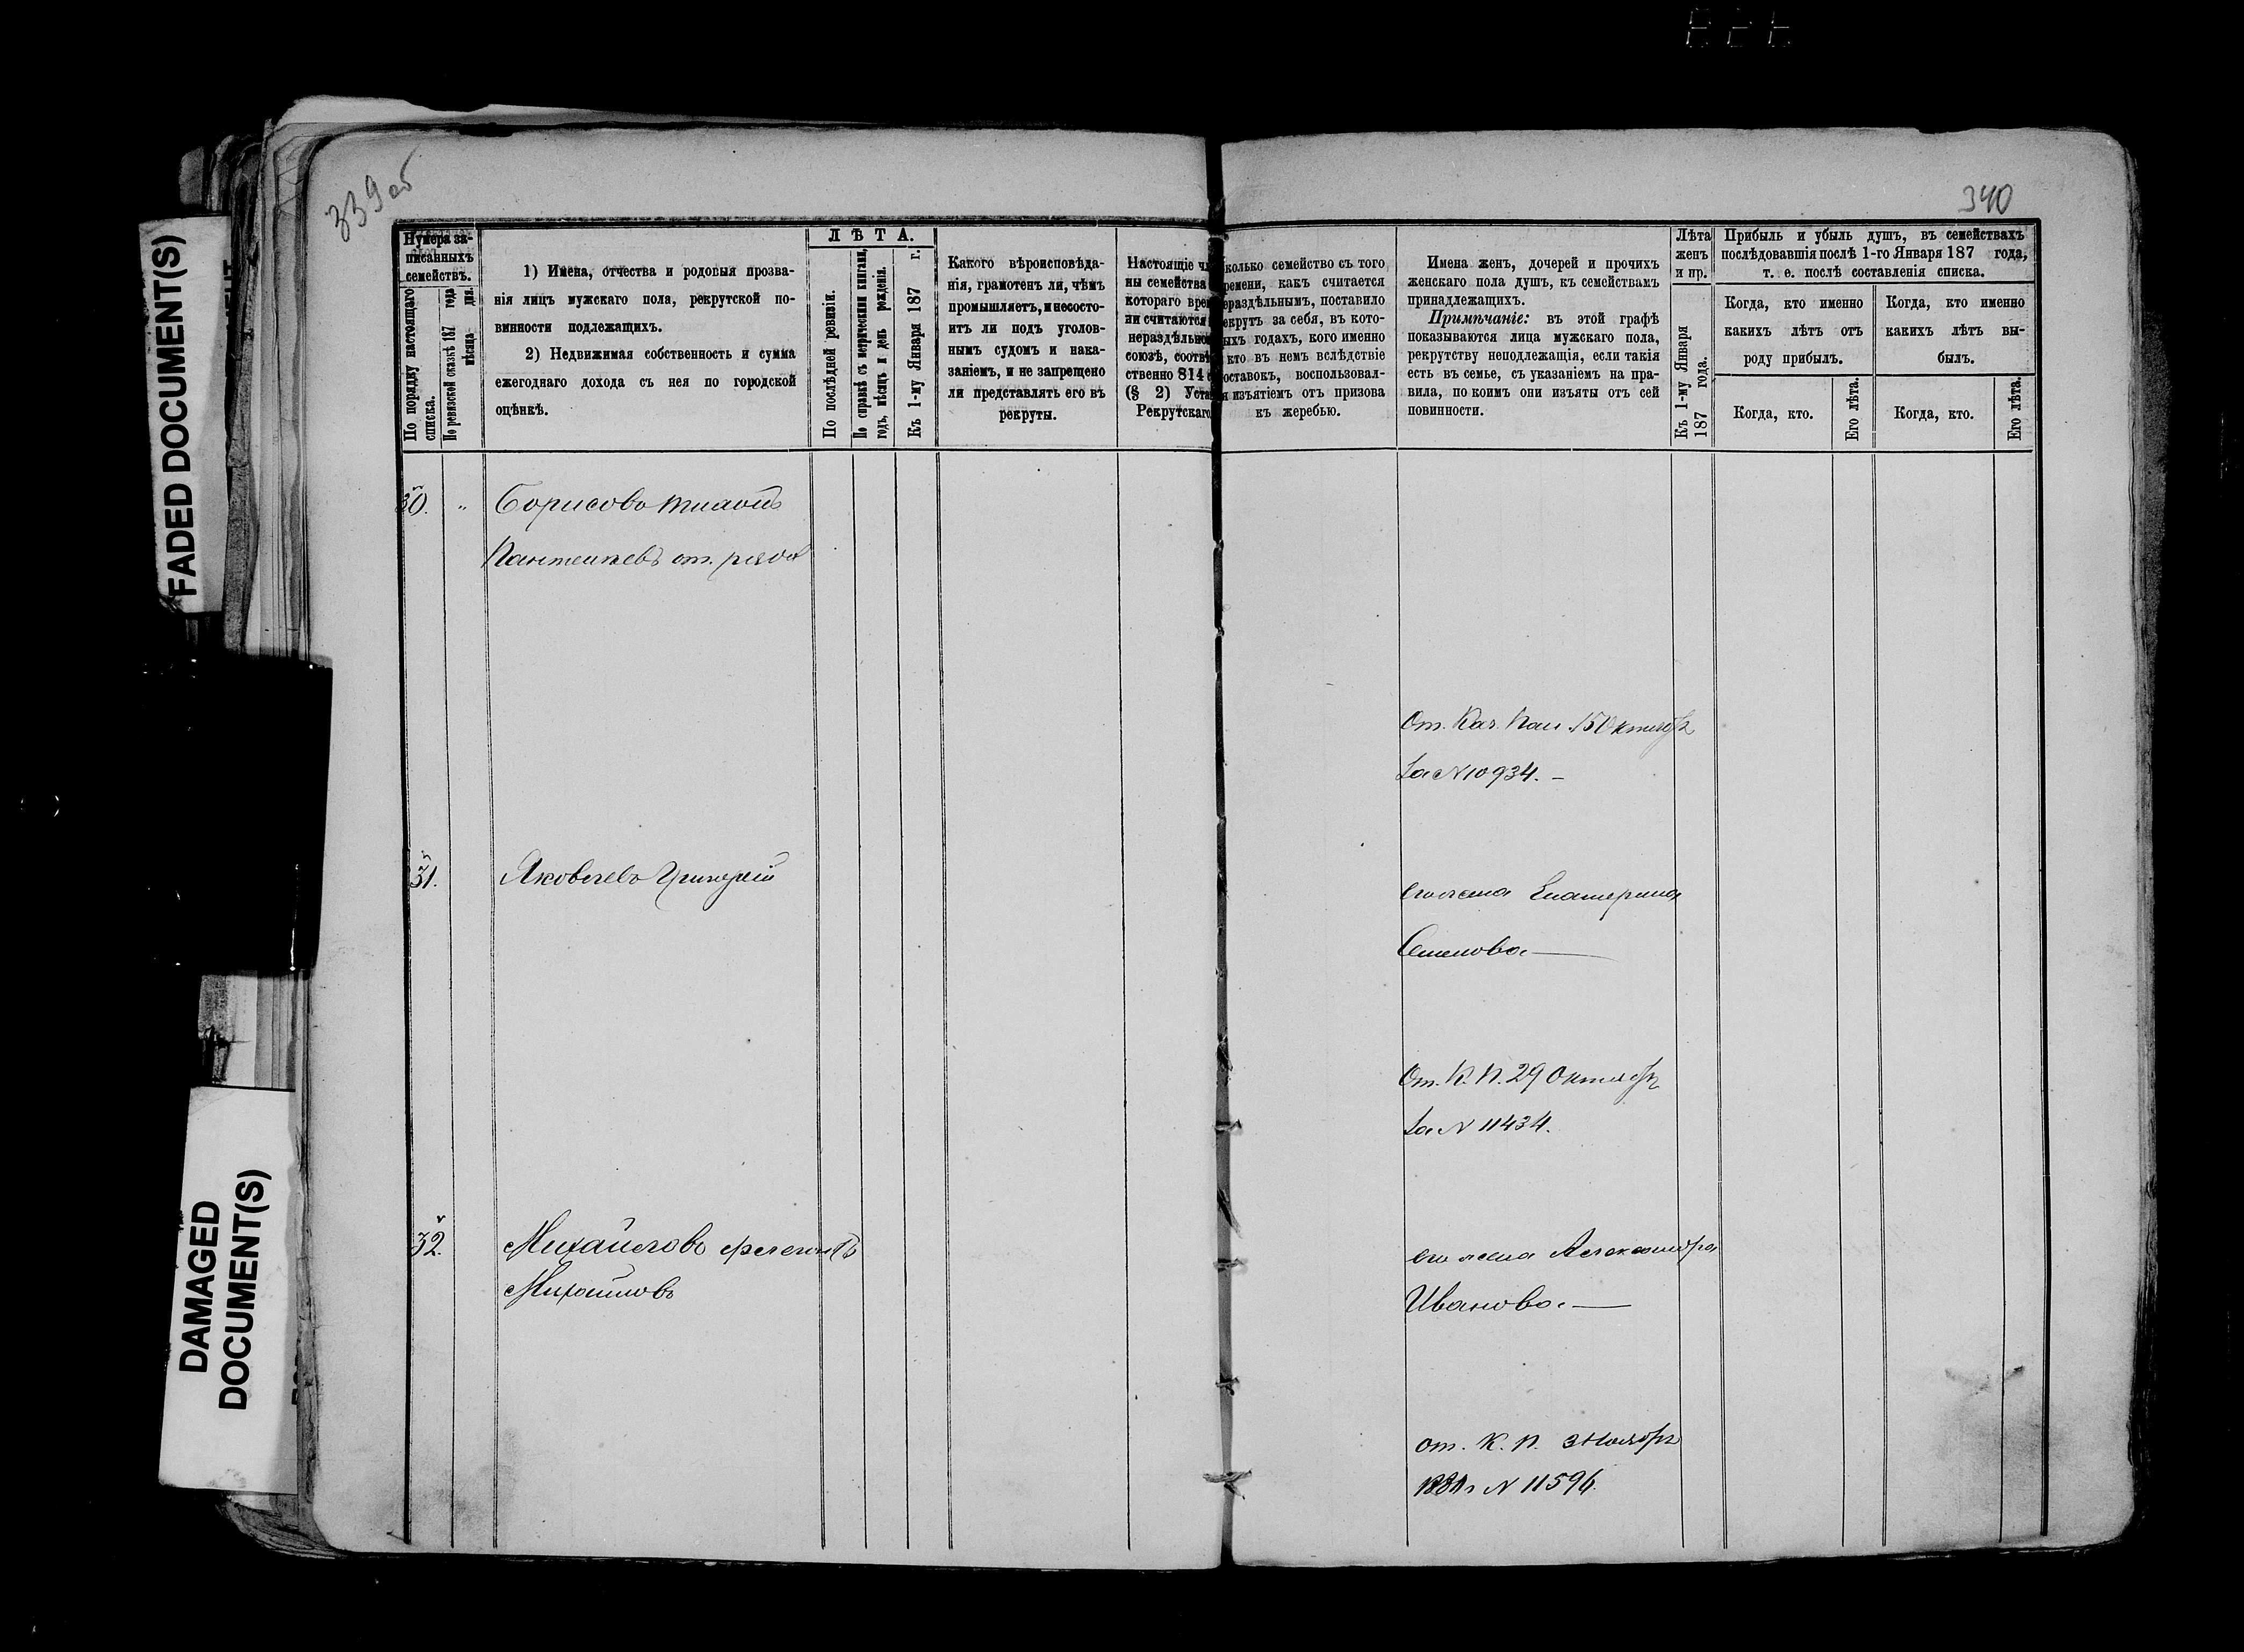 339 об
340
FADED DOCUMENT(S)
DAMAGED
DOCUMENT(S)
Нумера за-
писанныхъ
семействъ.
По порядку настоящаго
списка.
По ревизской сказкѣ 187 года
мѣсяца дня.
1) Имена, отчества и родовыя прозва-
нія лицъ мужскаго пола, рекрутской по-
винности подлежащихъ.
2) Недвижимая собственность и сумма
ежегоднаго дохода съ нея по городской
оцѣнкѣ.
ЛѢТА.
По послѣдней ревизіи.
По справкѣ съ метрическими книгами,
годъ, мѣсяцъ и день рожденія.
Къ 1-му Января 187 г.
Какого вѣроисповѣда-
нія, грамотенъ ли, чѣмъ
промышляетъ, и несосто-
итъ ли подъ уголов-
нымъ судомъ и нака-
заніемъ, и не запрещено
ли представлять его въ
рекруты.
Настоящіе
ны семейства
котораго
ли считаются
нераздѣльном
союзѣ,
ственно 814
(§ 2)
Рекрутскаго
колько семейство съ того
ремени, какъ считается
ераздѣльнымъ, поставило
екрутъ за себя, въ кото-
ыхъ годахъ, кого именно
кто въ немъ вслѣдствіе
оставокъ, воспользовал-
я изъятіемъ отъ призова
къ жеребью.
Имена женъ, дочерей и прочихъ
женскаго пола душъ, къ семействамъ
принадлежащихъ.
Примѣчаніе: въ этой графѣ
показываются лица мужскаго пола,
рекрутству неподлежащія, если такія
есть въ семье, съ указаніемъ на пра-
вила, по коимъ они изъяты отъ сей
повинности.
Лѣта
женъ
и пр.
Къ 1-му Января
187 года.
Прибыль и убыль душъ, въ семействахъ
послѣдовавшія послѣ 1-го Января 187 года,
т. е. послѣ составленія списка.
Когда, кто именно
какихъ лѣтъ отъ
роду прибылъ.
Когда, кто именно
какихъ лѣтъ вы-
былъ.
Когда, кто.
Его лѣта.
Когда, кто.
Его лѣта.
30. " Борисовъ
от. рядов
От. Каз. Пал. 15 Октября
за N 10934. –
31. Яковлевъ Григорій
его жена Екатерина
Семенова —
От. К. П. 29 Октября
за N 11434.
32. Михайловъ Флегонтъ
Михайловъ
его жена Александра
Иванова. —
от. К. П. 3 Ноября
N 11596.